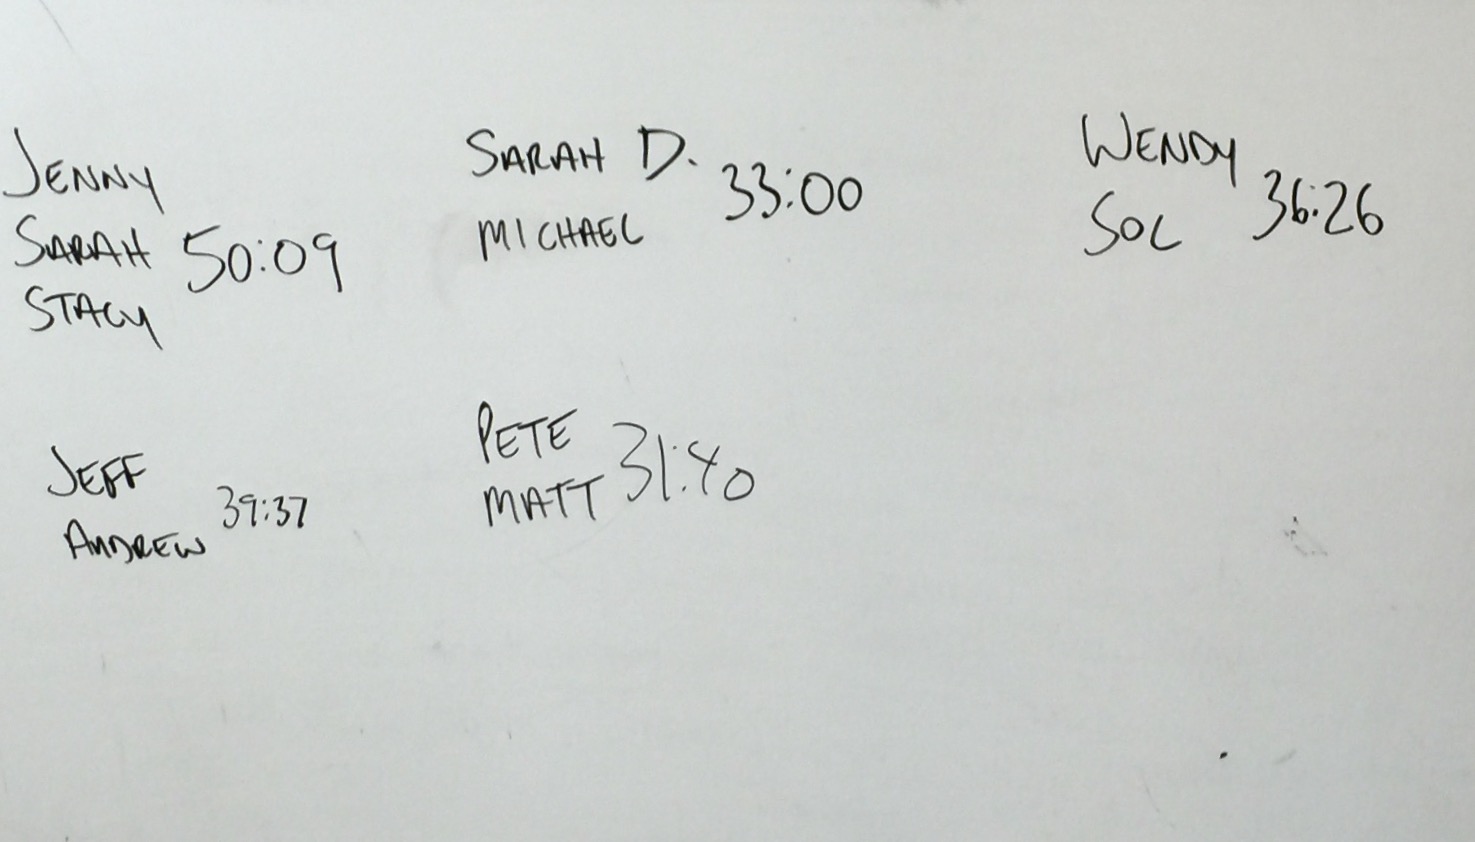 JENNY
SARAH 50:09
STACY
SARAH D.
MICHAEL 33:00
WENDY
SOL 36:26
JEFF
ANDREW 39:37
PETE
MATT 31:40